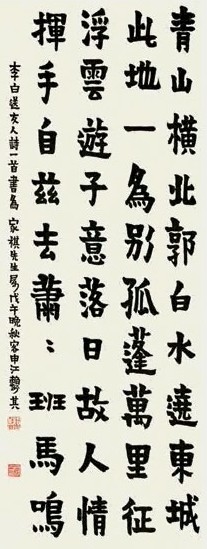 青山橫北郭白水遶東城
此地一為別孤蓬萬里征
浮雲遊子意落日故人情
揮手自茲去蕭〻班馬鳴
李白送友人詩一首書為 家祺先生屬戊午晚秋客申江